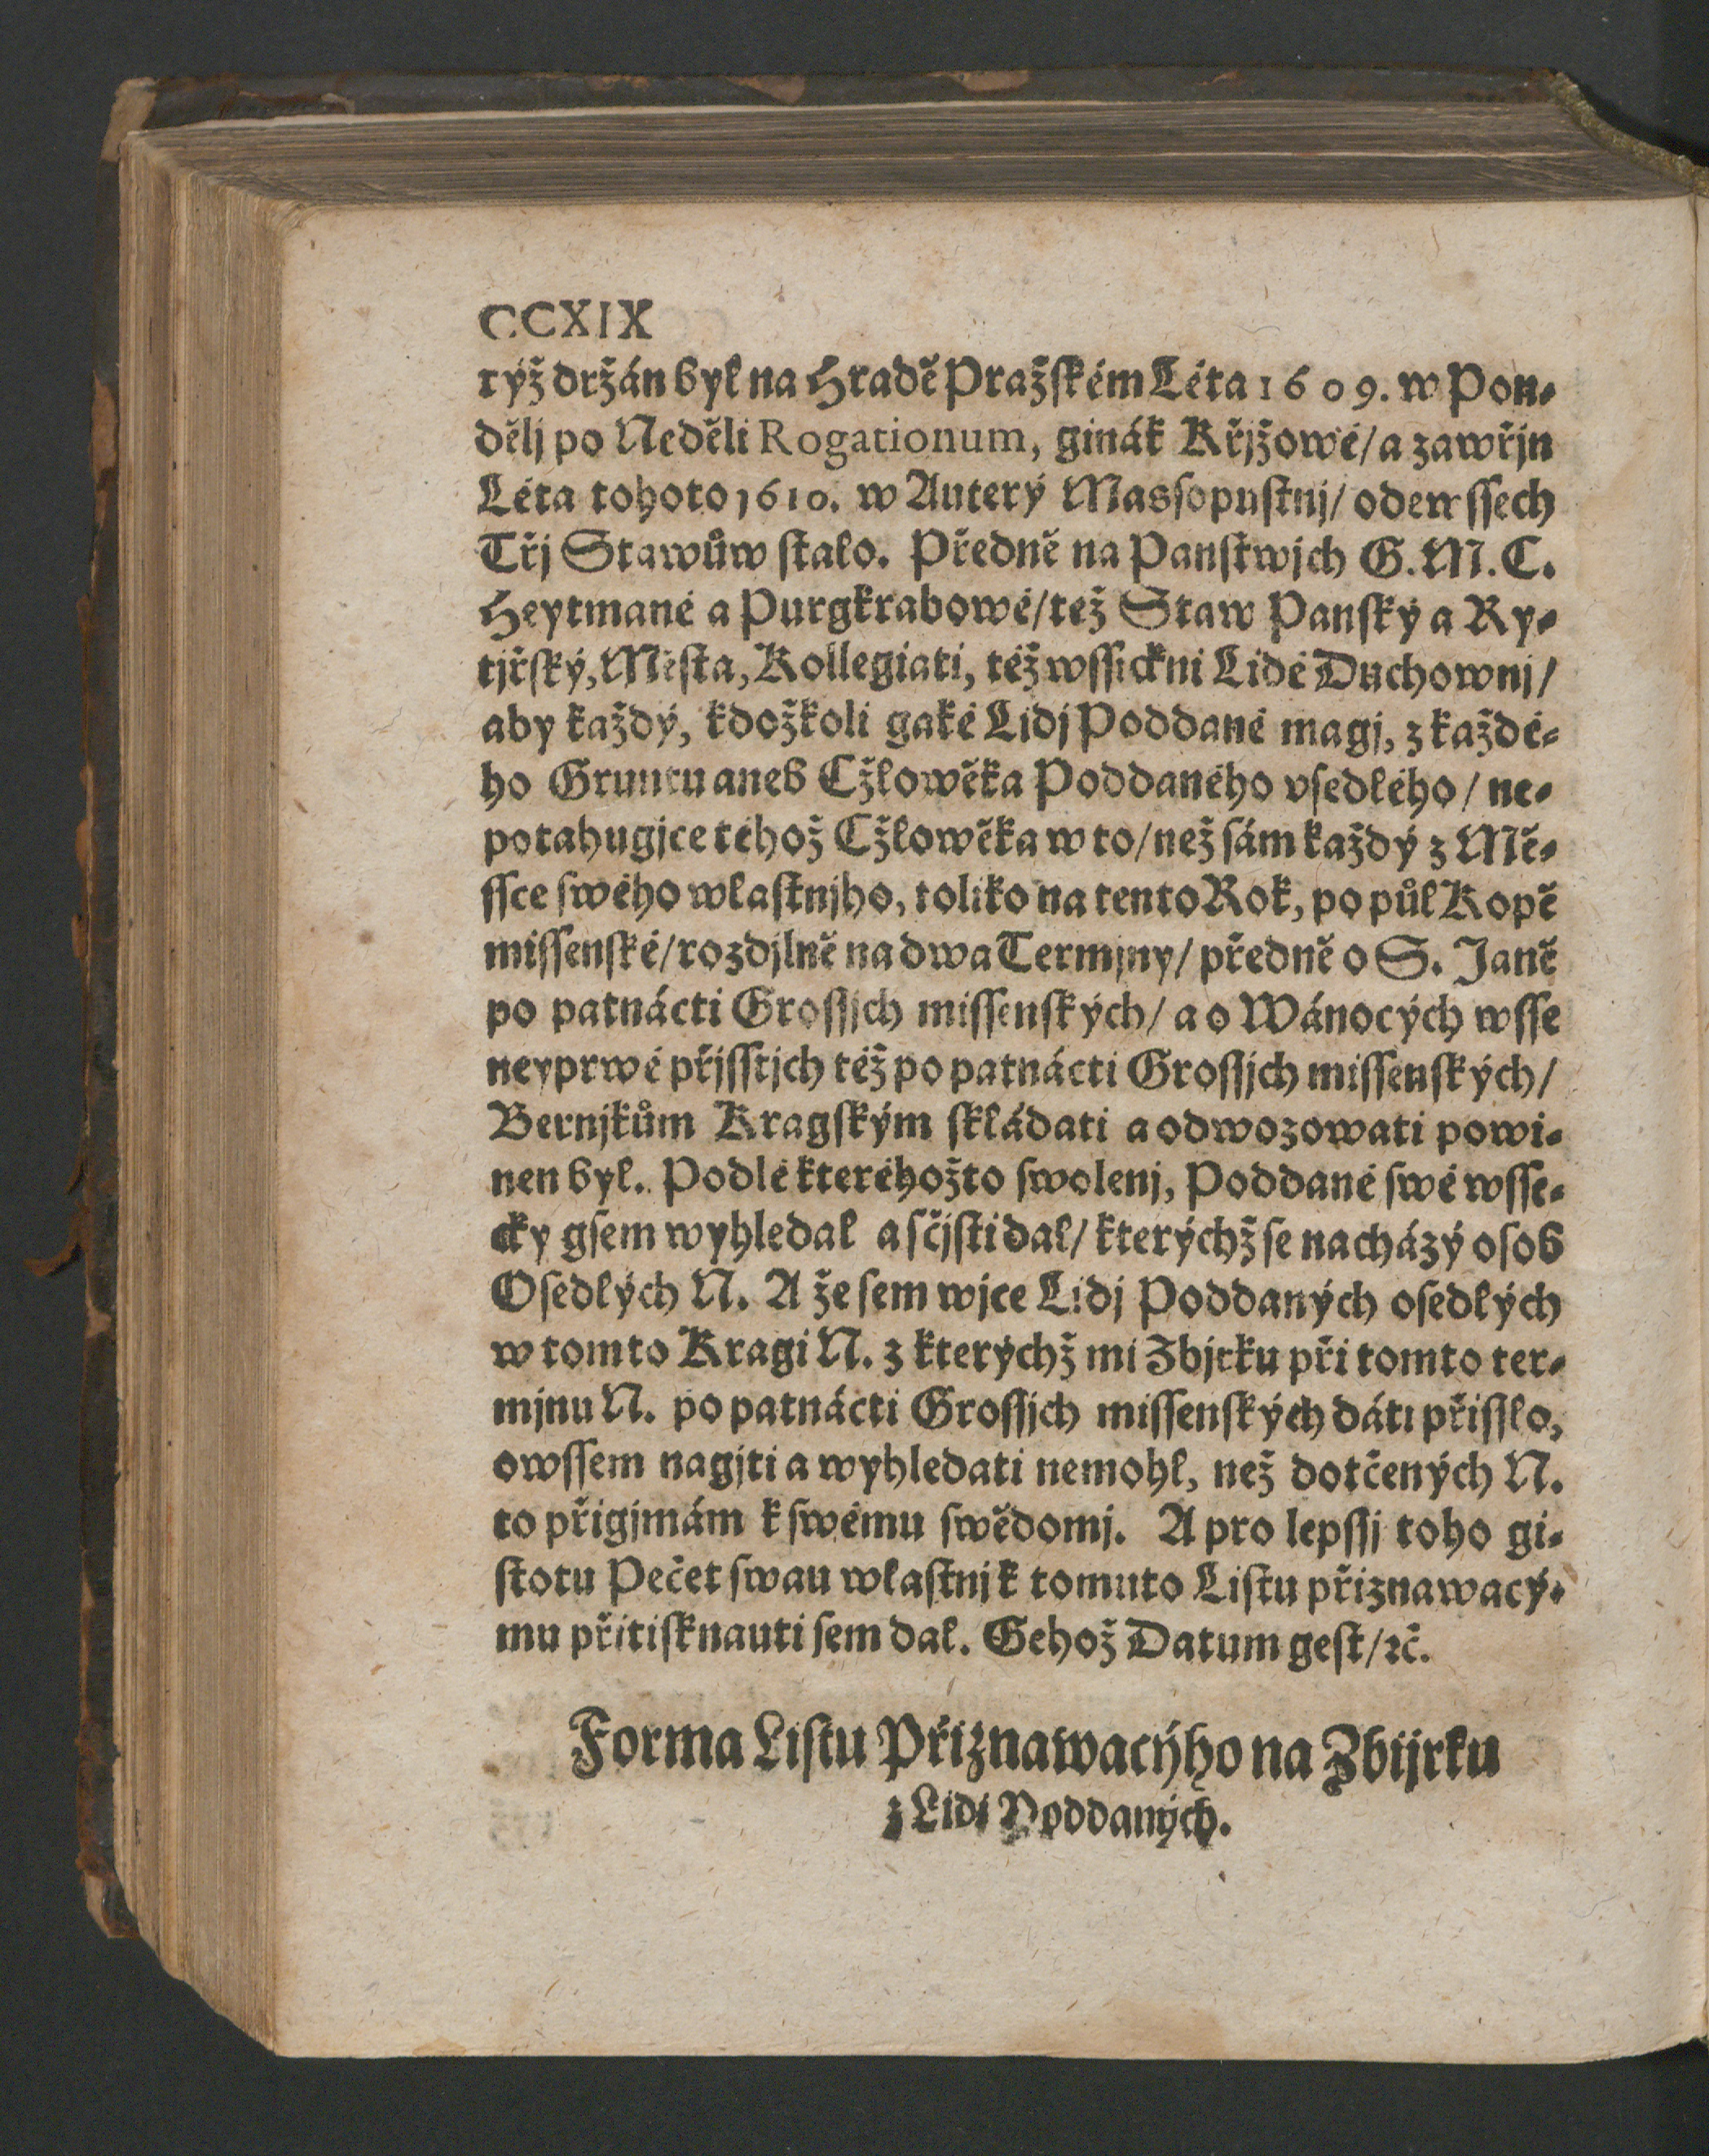 CCXIX
rýž držán byl na Hradě Pražſkém Léta 1609. w Pon⸗
dělj po Neděli Rogationum, ginák Křjžowé/ a zawřjn
Léta tohoto 1610. w Auterý Massopuſtnj/ odewſſech
Třj Stawůw ſtalo. Předně na Panſtwjch G. M. C.
Heytmané a Purgkrabowé/ též Staw Panſký a Ry⸗
tjřſký, Měſta, Kollegiati, též wſſickni Lidé Duchownj/
aby každý, kdožkoli gaké Lidj Poddané magj, z každé⸗
ho Gruntu aneb Cžlowěka Poddaného vſedlého/ ne⸗
potahugjce téhož Cžlowěka w to/ než ſám každý z Mě⸗
ſſce ſwého wlaſtnjho, toliko na tento Rok, po půl Kopě
miſſenſké/ rozdjlně na dwa Termjny/ předně o S. Janě
po patnácti Groſſjch miſſenſkých/ a o Wánocých wſſe
neyprwé přjſſtjch též po patnácti Groſſjch miſſenſkých/
Bernjkům Kragſkým ſkládati a odwozowati powi⸗
nen byl. Podlé kteréhožto ſwolenj, Poddané ſwé wſſe⸗
cky gſem wyhledal a ſčjſti dal/ kterýchž ſe nacházý oſob
Oſedlých N. A že ſem wjce Lidj Poddaných oſedlých
w tomto Kragi N. z kterýchž mi Zbjrku při tomto ter⸗
mjnu N. po patnácti Groſſjch miſſenſkých dáti přiſſlo,
owſſem nagjti a wyhledati nemohl, než dotčených N.
to přigjmám k ſwému ſwědomj. A pro lepſſj toho gi⸗
ſtotu Pečet ſwau wlaſtnj k tomuto Liſtu přiznawacý⸗
mu přitiſknauti ſem dal. Gehož Datum geſt/ ꝛč.
Forma Liſtu Přiznawacýho na Zbijrku
z Lidj Poddaných.